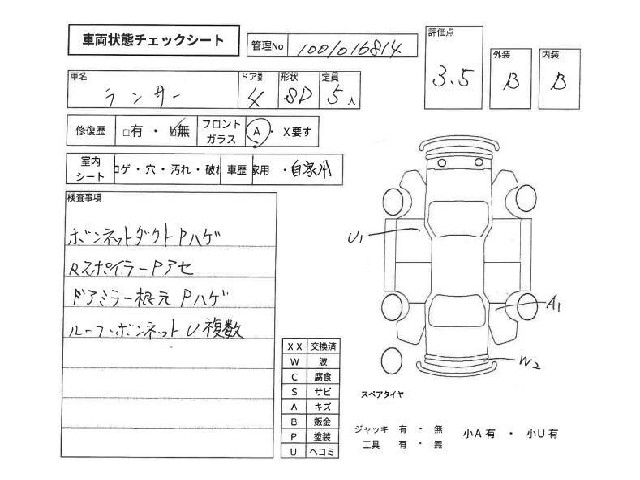 車両状態チェックシート
管理No 1001016814
評価点 3.5
外装 B
内装 B
車名 ランサー
ドア数 4
形状 SD
定員 5人
修復歴 □有・☑無
フロントガラス A・X要す
室内シート コゲ・穴・汚れ・破れ
車歴 家用・自家用
検査事項
ボンネットダクトPハゲ
RスポイラーPアセ
ドアミラー根元Pハゲ
ルーフ・ボンネットU複数
U1
A1
W2
XX 交換済
W 波
C 腐食
S サビ
A キズ
B 鈑金
P 塗装
U ヘコミ
スペアタイヤ
ジャッキ 有・無
工具 有・無
小A有・小U有